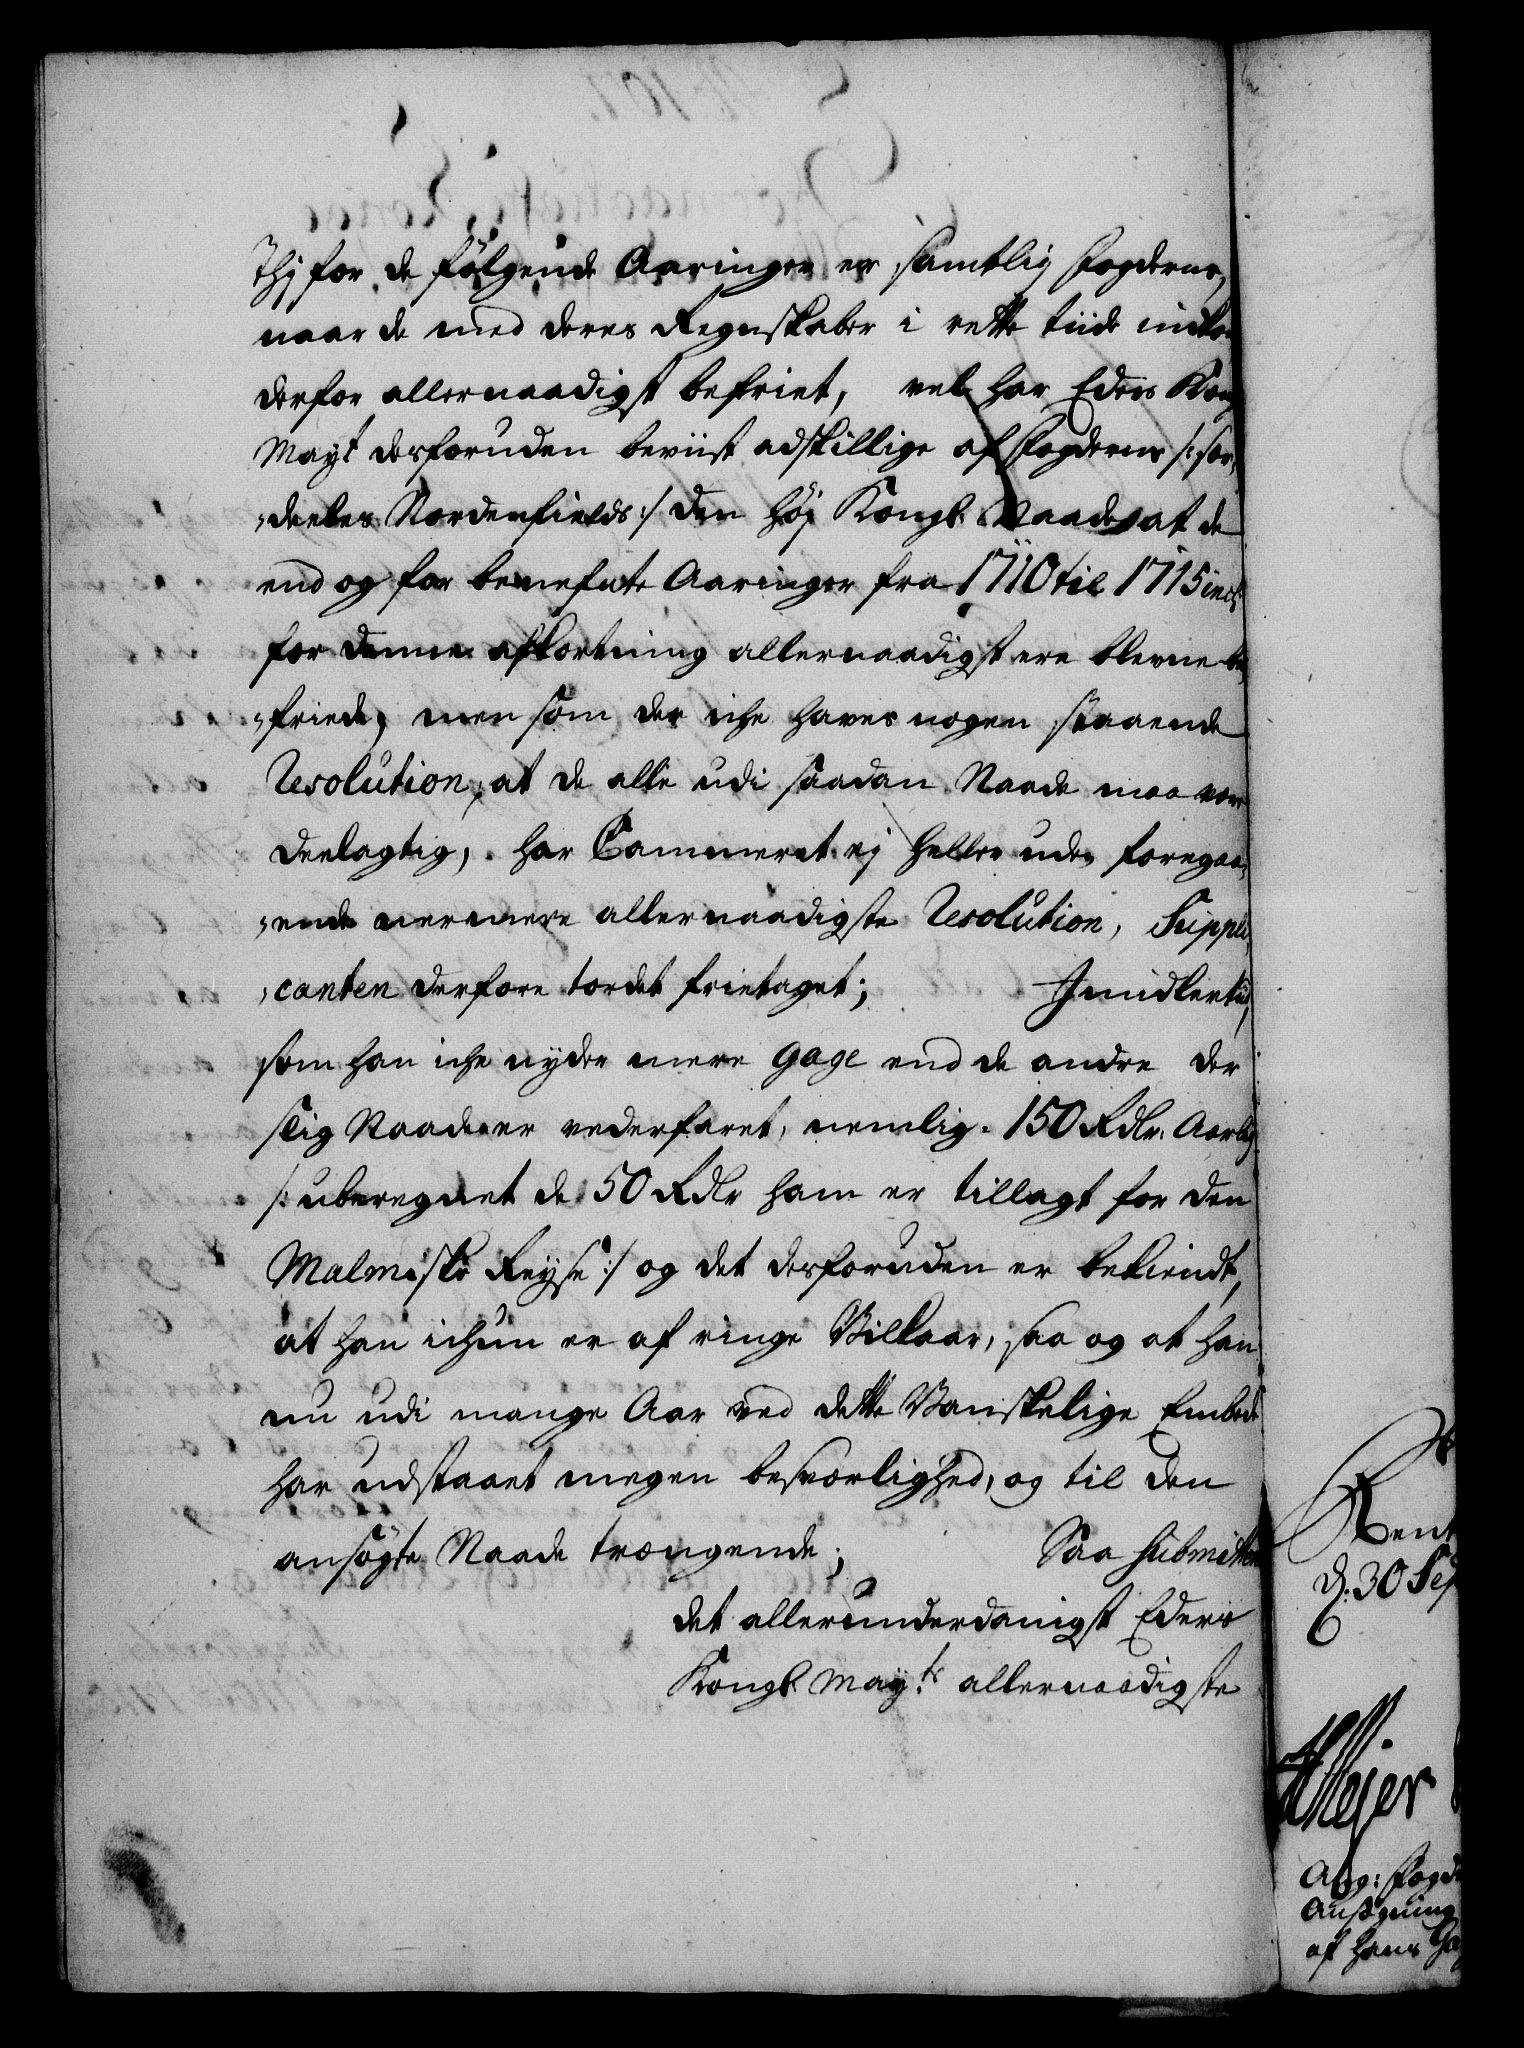 Thj for de følgende Aaringer er samtlig fogderne,
naar de med deres Regnskaber i rette tiide indko
derfor allernaadigst befriet, vel har Eders Kong
Mayt desforuden beviist adskillige af fogderne /: sær,
,deeles Nordenfields :/ den høj Kongl. Naade, at de
end og for benefnte Aaringer fra 1710 til 1715 incl:
for denne afkortning allernaadigst ere blevne be,
,friede, men som der iche haves nogen staaende
Resolution, at de alle udi saadan Naade maa være
deelagtig, har Cammeret ej heller uden foregaa,
,ende nermere allernaadigste Resolution, Suppli,
,canten derfore tordet frietaget; Imidlertiid,
som han iche nyder mere gage end de andre der
slig Naade er vederfaret, nemlig. 150 Rdlr. Aarlig
/: uberegnet de 50 Rdlr ham er tillagt for den
Malmiske Reyse :/ og det desforuden er bekiendt,
at han ichun er af ringe Vilkaar, saa og at han
nu udi mange Aar ved dette Vanskelige Embede
har udstaaet megen besværlighed, og til den
ansøgte Naade trængende; Saa submitte
det allerunderdanigst Eders
Kongl. Mayts allernaadigste
Rent
d. 30 Sep
Meyer
Ang: fogd
Ansøgning
af hans Ga